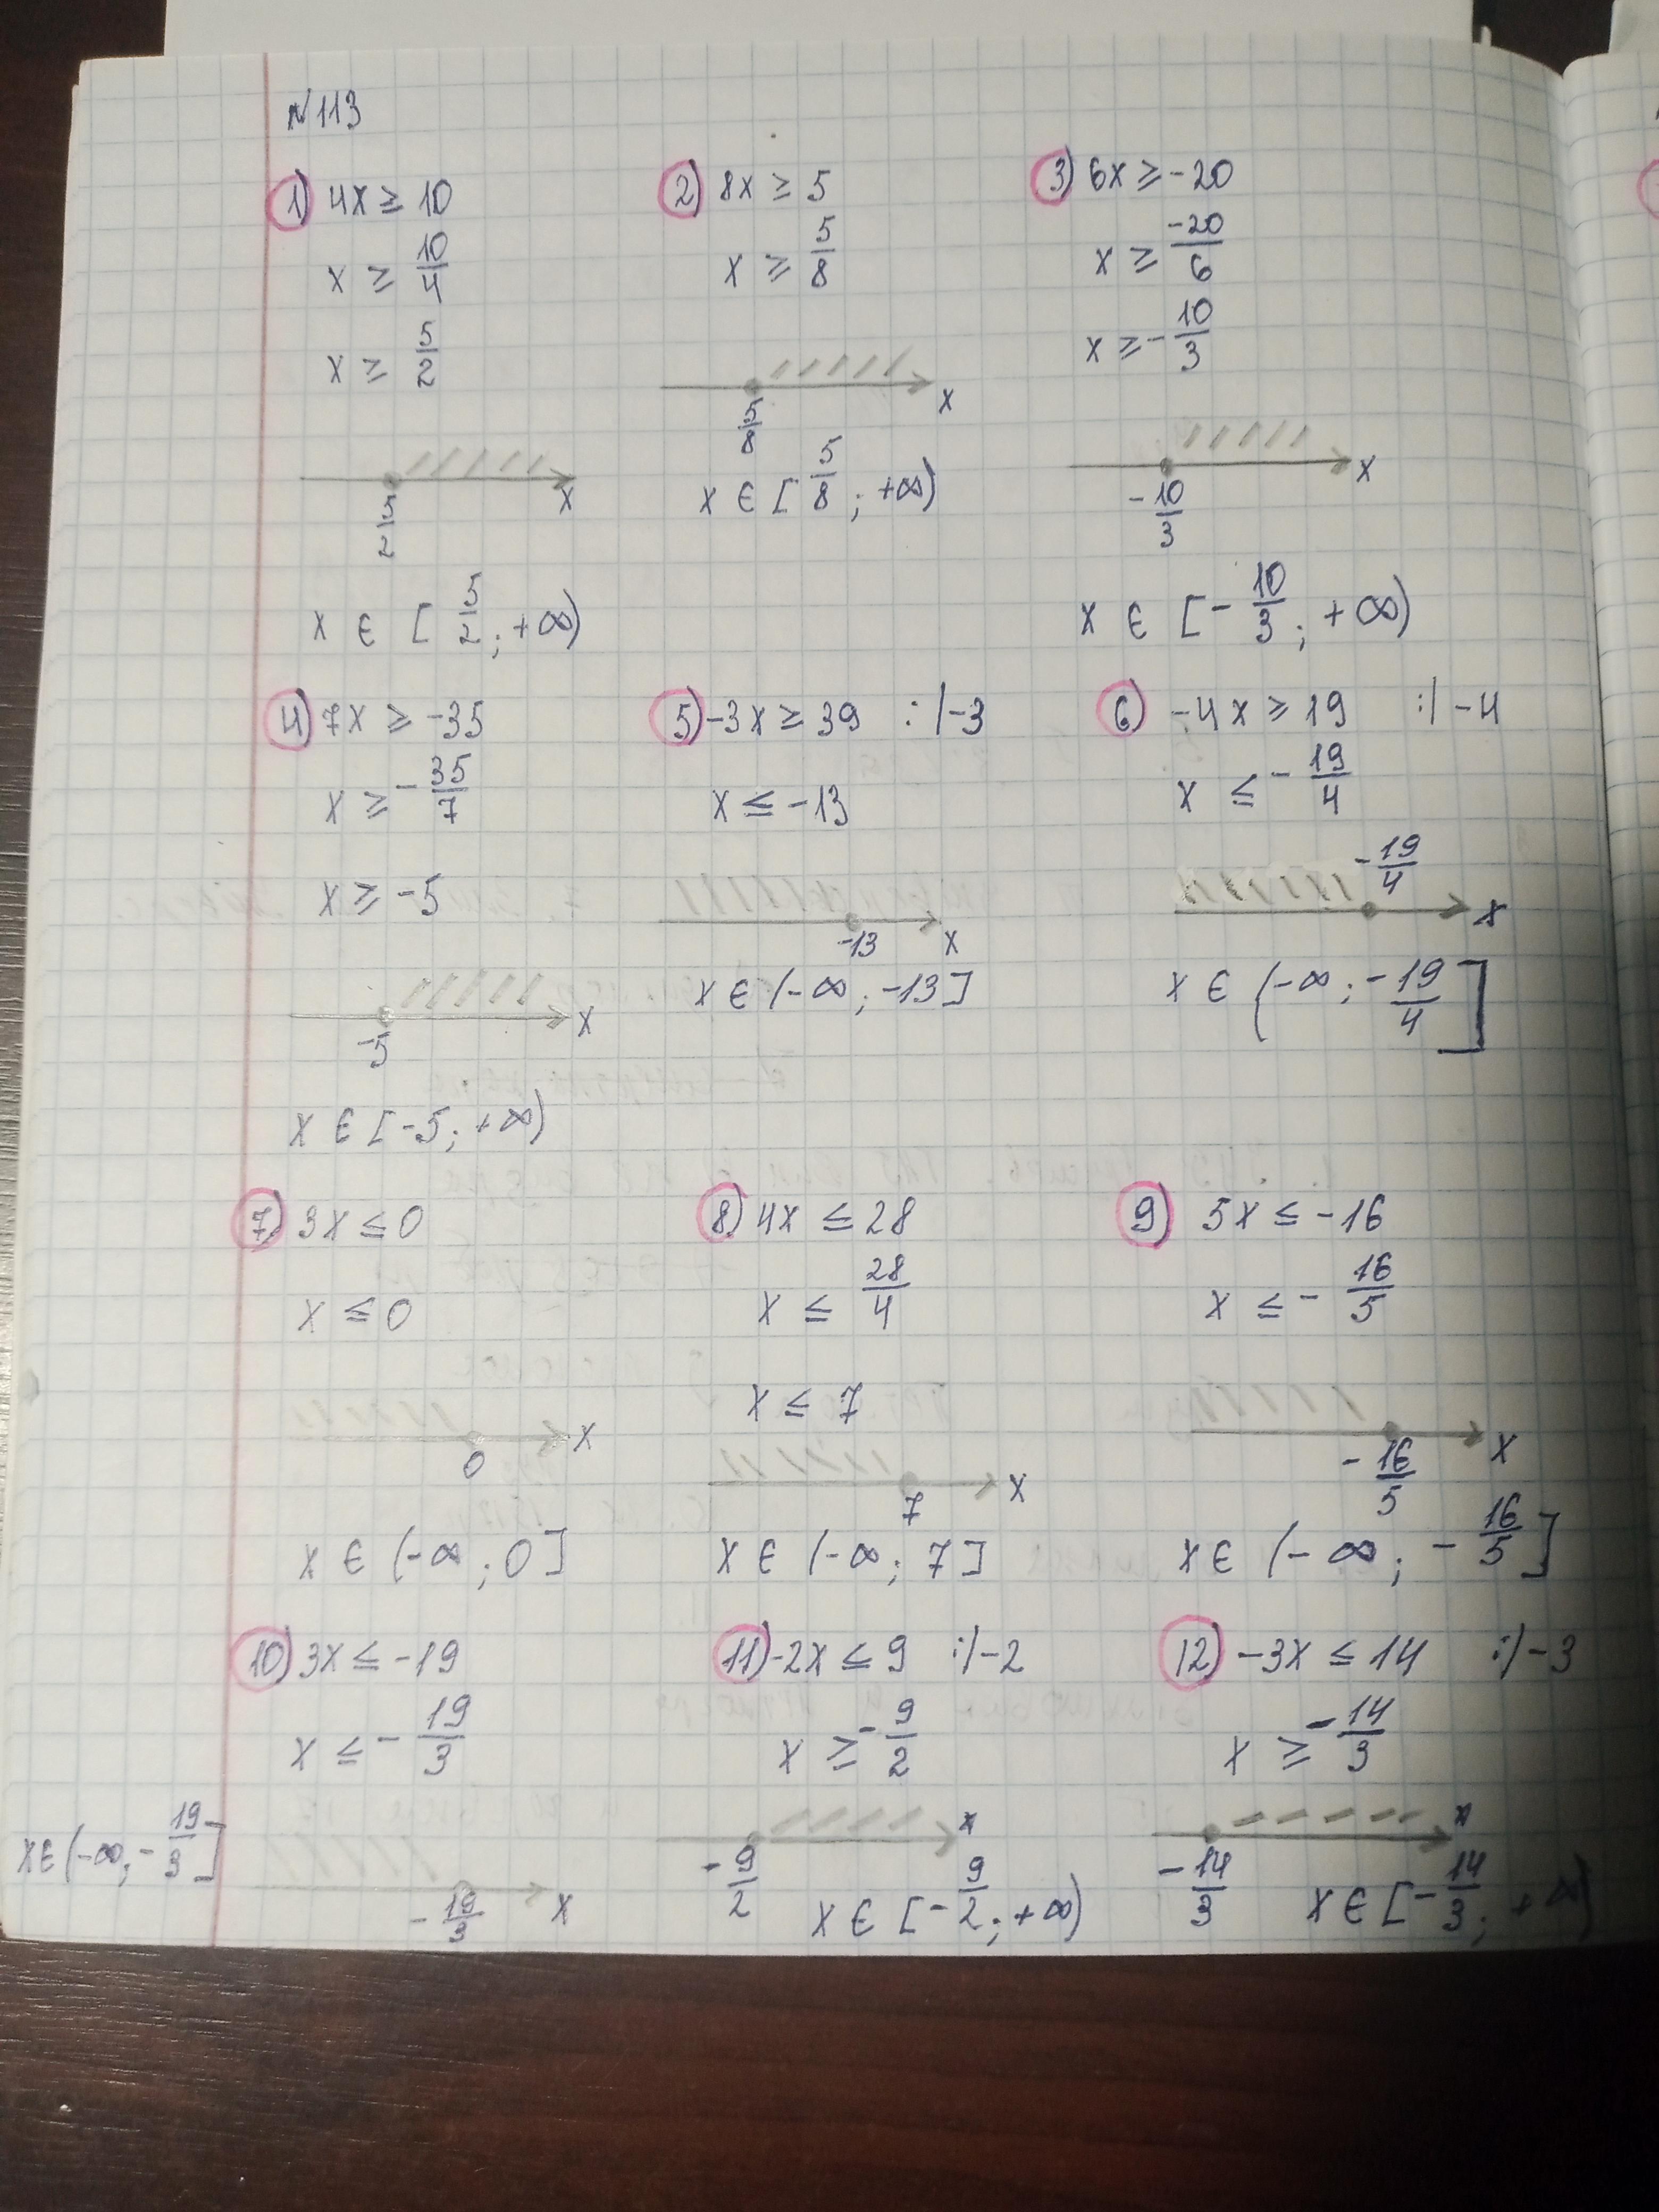 N113
1) 4x ≥ 10
x ≥ 10/4
x ≥ 5/2
5/2 x
x ∈ [5/2; +∞)
2) 8x ≥ 5
x ≥ 5/8
5/8 x
x ∈ [5/8; +∞)
3) 6x ≥ -20
x ≥ -20/6
x ≥ -10/3
-10/3 x
x ∈ [-10/3; +∞)
4) 7x ≥ -35
x ≥ -35/7
x ≥ -5
-5 x
x ∈ [-5; +∞)
5) -3x ≥ 39 :/-3
x ≤ -13
-13 x
x ∈ (-∞; -13]
6) -4x ≥ 19 :/-4
x ≤ -19/4
-19/4 x
x ∈ (-∞; -19/4]
7) 3x ≤ 0
x ≤ 0
0 x
x ∈ (-∞; 0]
8) 4x ≤ 28
x ≤ 28/4
x ≤ 7
7 x
x ∈ (-∞; 7]
9) 5x ≤ -16
x ≤ -16/5
-16/5 x
x ∈ (-∞; -16/5]
10) 3x ≤ -19
x ≤ -19/3
-19/3 x
x ∈ (-∞; -19/3]
11) -2x ≤ 9 :/-2
x ≥ -9/2
-9/2 x
x ∈ [-9/2; +∞)
12) -3x ≤ 14 :/-3
x ≥ -14/3
-14/3 x
x ∈ [-14/3; +∞)